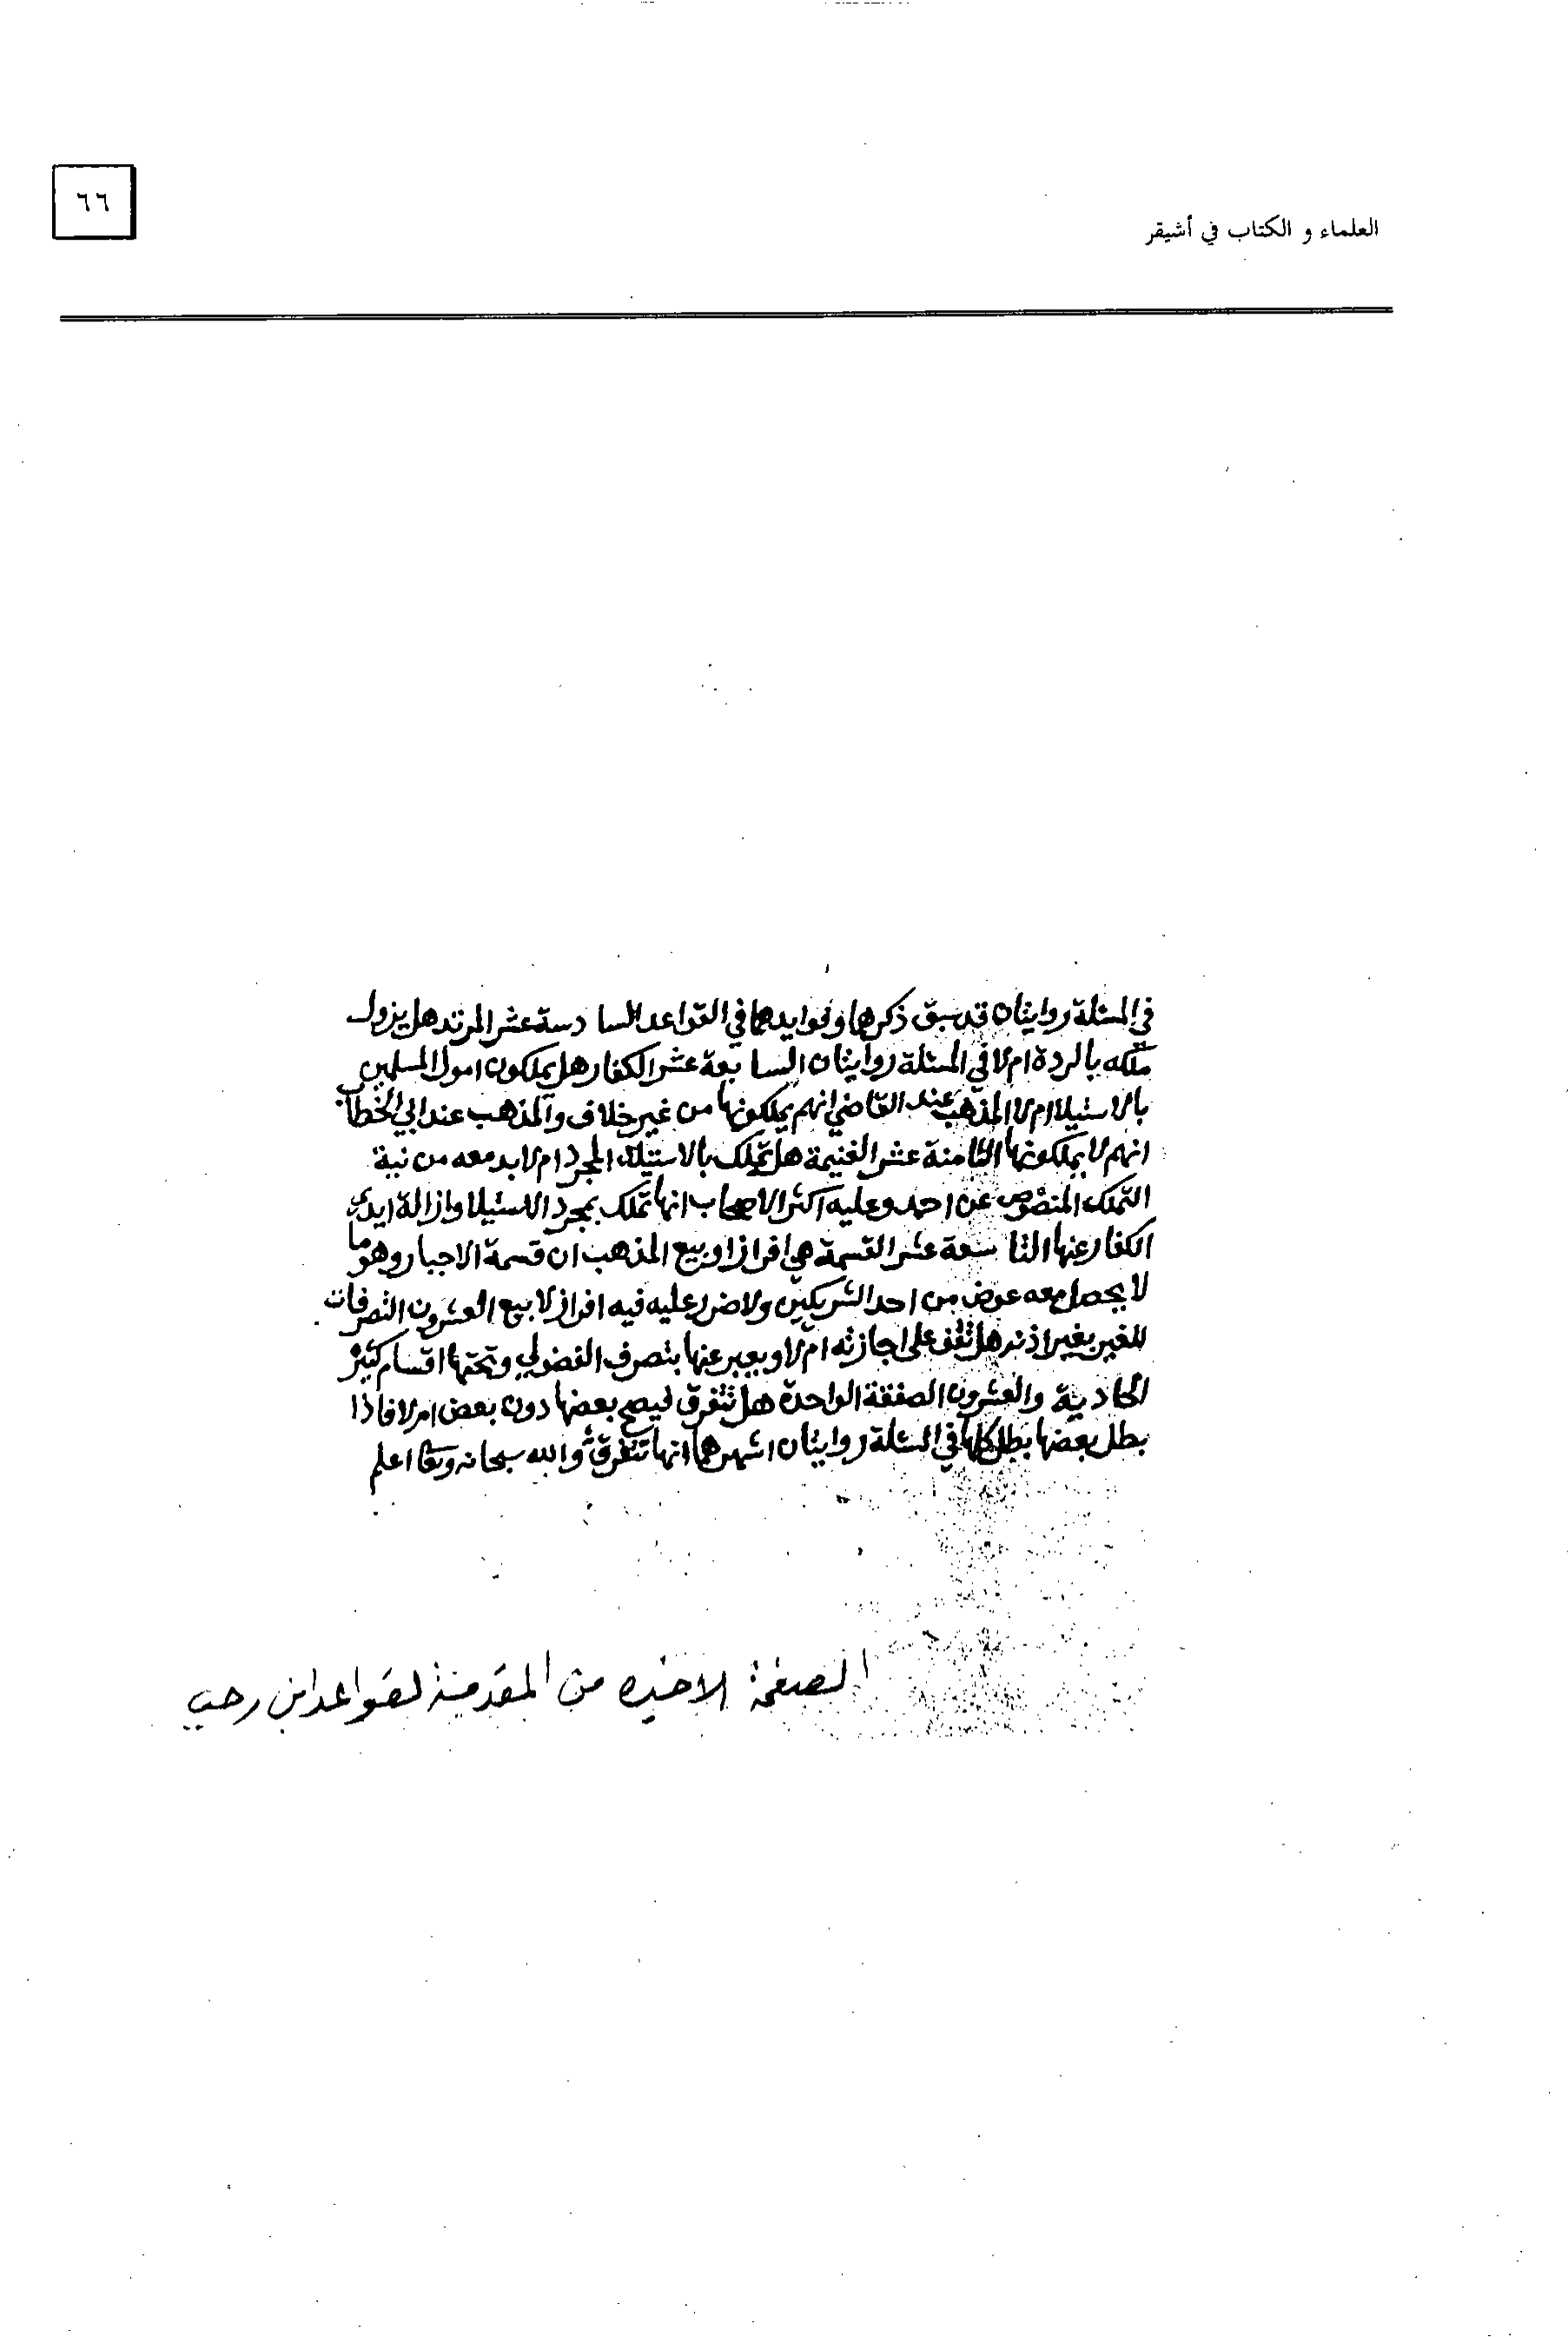 العلماء و الكتاب في أشيقر
٦٦
في المسئلة روايتان قد سبق ذكرها وفوايدهما في القواعد السادسة عشر المرتد هل يزول
ملكه بالردة ام لا في المسئلة روايتان السابعة عشر الكفار هل يملكون اموال المسلمين
بالاستيلا ام لا المذهب عند القاضي انهم يملكونها من غير خلاف والمذهب عند ابي الخطاب
انهم لا يملكونها الثامنة عشر الغنيمة هل تملك بالاستيلاء المجرد ام لا بد معه من نية
التملك المنصوص عن احمد وعليه اكثر الاصحاب انها تملك بمجرد الاستيلا وازالة ايدي
الكفار عنها التاسعة عشر القسمة هي افراز او بيع المذهب ان قسمة الاجبار وهو ما
لا يحصل معه عوض من احد الشريكين ولا ضرر عليه فيه افراز لا بيع العشرون التصرفات
للغير بغير اذنه هل تقف على اجازته ام لا ويعبر عنها بتصرف الفضولي وتحتها اقسام كثيرة
الحادية والعشرون الصفقة الواحدة هل تتفرق فيصح بعضها دون بعض ام لا فاذا
بطل بعضها بطل كلها في المسئلة روايتان اشهرهما انها تتفرق والله سبحانه وتعا اعلم
الصفحة الاخيره من المقدمة لقواعد ابن رجب